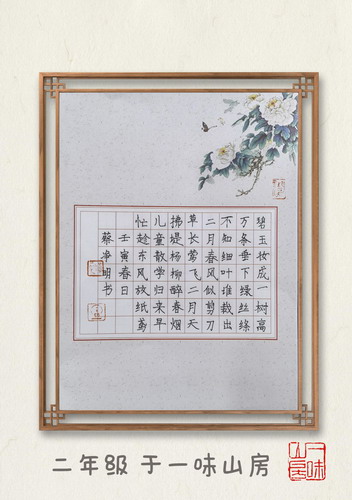 碧玉妆成一树高
万条垂下绿丝绦
不知细叶谁裁出
二月春风似剪刀
草长莺飞二月天
拂堤杨柳醉春烟
儿童散学归来早
忙趁东风放纸鸢
壬寅春日
蔡净明书
二年级 于一味山房
一味山房